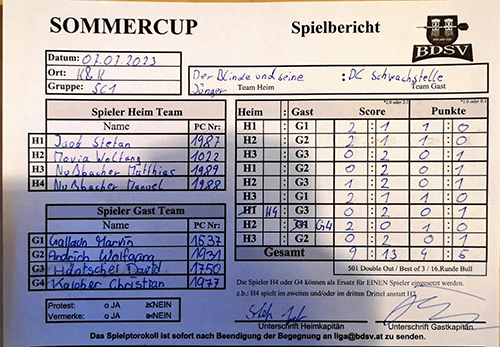 SOMMERCUP Spielbericht
BDSV
Datum: 07.07.2023
Ort: K&K
Gruppe: SC1
Der Blinde und seine Jünger : DC Schwachstelle
Team Heim Team Gast
Spieler Heim Team
Name PC Nr:
H1 Stefan 1987
H2 Wolfgang 1022
H3 Nußbacher Matthias 1989
H4 Nußbacher Manuel 1988
Spieler Gast Team
Name PC Nr:
G1 Marvin 1537
G2 Andrich Wolfgang 1931
G3 Häntschel David 1750
G4 Kalcher Christian 1977
Protest: o JA NEIN
Vermerke: o JA NEIN
*2:0 oder 2:1 *1:0 oder 0:1
Heim : Gast Score Punkte
H1 : G1 2 : 1 1 : 0
H2 : G2 2 : 1 1 : 0
H3 : G3 0 : 2 0 : 1
H2 : G1 0 : 2 0 : 1
H3 : G2 1 : 2 0 : 1
H1 H4 : G3 0 : 2 0 : 1
H2 : G4 2 : 0 1 : 0
H3 : G2 0 : 2 0 : 1
Gesamt 9 : 13 4 : 5
501 Double Out / Best of 3 / 16.Runde Bull
Die Spieler H4 oder G4 können als Ersatz für EINEN Spieler eingesetzt werden.
z.b.: H4 spielt im zweiten und/oder im dritten Drittel anstatt H2
Unterschrift Heimkapitän Unterschrift Gastkapitän
Das Spielprotokoll ist sofort nach Beendigung der Begegnung an liga@bdsv.at zu senden.